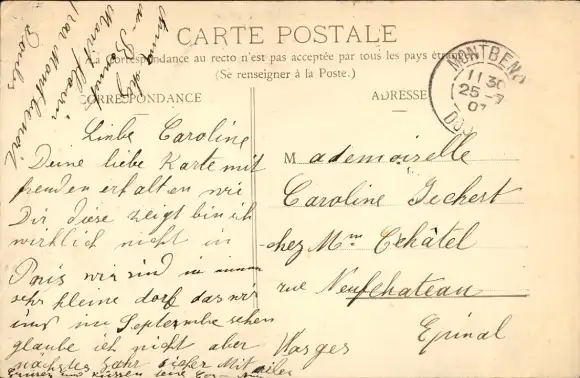 CARTE POSTALE
La correspondance au recto n'est pas acceptée par tous les pays étrangers
(Se renseigner à la Poste.)
CORRESPONDANCE
ADRESSE
MONTBEN
11 30
25 -
07
DOU
Liebe Caroline
Deine liebe Karte mit
freuden erhalten wie
Dir diese zeigt bin ich
wirklich nicht in
Paris wir sind in einem
sehr kleine dorf das wir
uns im Septembre sehen
glaube ich nicht aber
nächstes Jahr sicher Mit
Grüssen und Küssen deine
Mademoiselle
Caroline Jechert
chez Mme Cchâtel
rue Neufchateau
Epinal
Vosges
Mont
par Montbenoit
Doubs